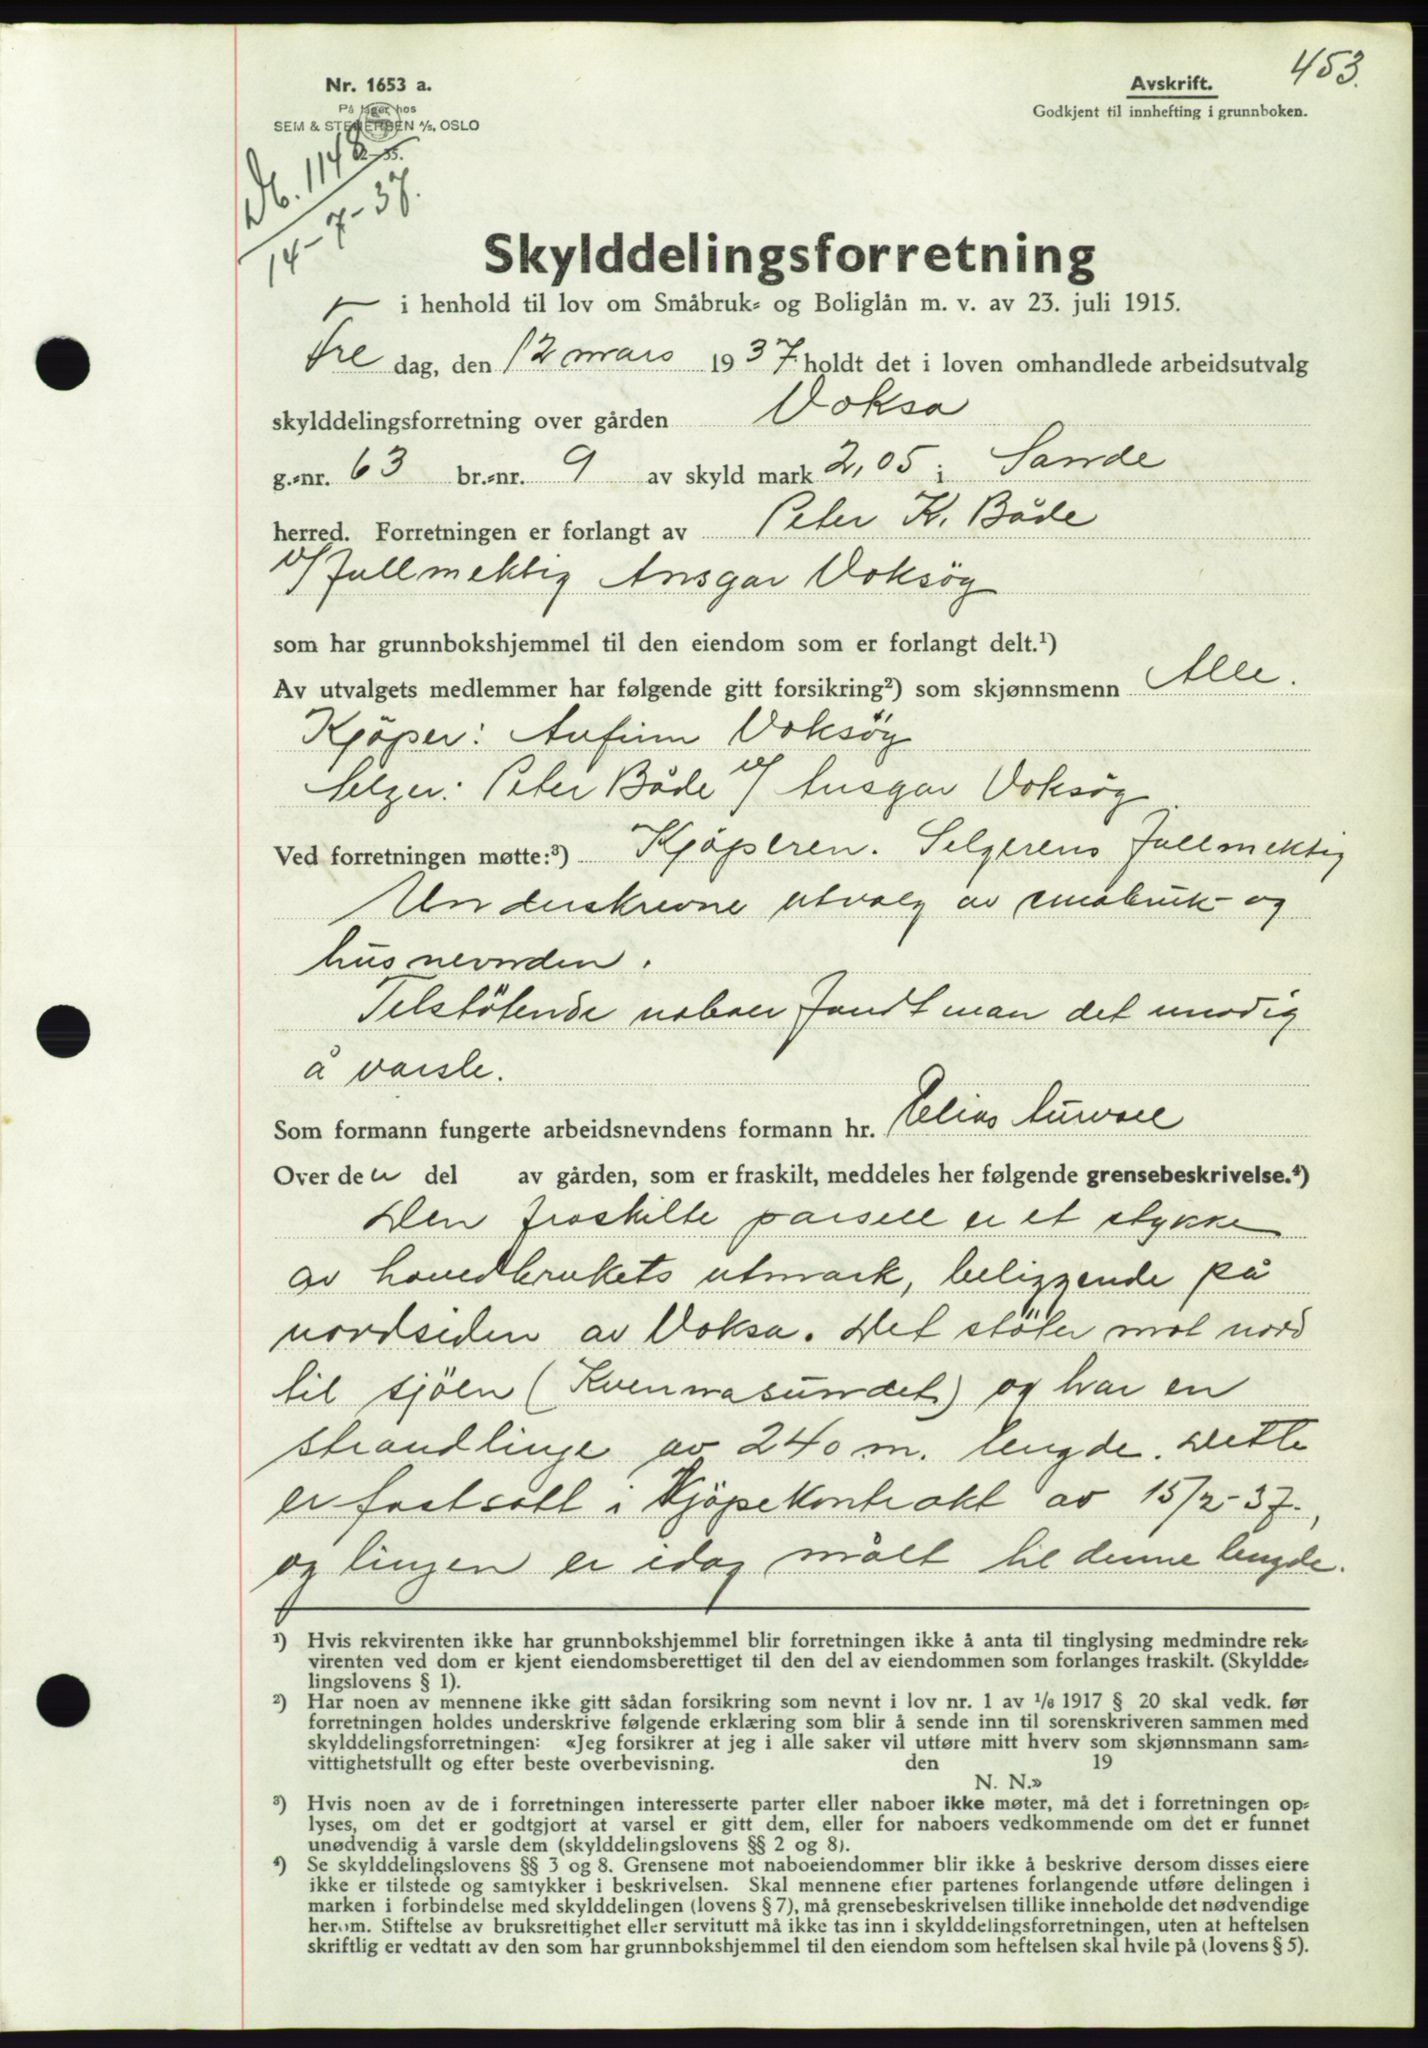 453.
Nr. 1653 a.
På lager hos
SEM & STENERSEN A/S, OSLO
Avskrift.
Godkjent til innhefting i grunnboken.
Db. 1148
14-7-37.
Skylddelingsforretning
i henhold til lov om Småbruk- og Boliglån m. v. av 23. juli 1915.
Fre dag, den 12 mars 1937. holdt det i loven omhandlede arbeidsutvalg
skylddelingsforretning over gården Voksa
g.-nr. 63 br.-nr. 9 av skyld mark 2,05 i Sande
herred. Forretningen er forlangt av Peter K. Både
v/ fullmektig Ansgar Voksöy
som har grunnbokshjemmel til den eiendom som er forlangt delt.¹)
Av utvalgets medlemmer har følgende gitt forsikring²) som skjønnsmenn Alle.
Kjöper: Anfinn Voksöy
Selger: Peter Både v/ Ansgar Voksöy
Ved forretningen møtte:³) Kjöperen. Selgerens fullmektig
Underskrevne utvalg av småbruk- og
husnevnden.
Tilstötende naboer fandt man det unödig
å varsle.
Som formann fungerte arbeidsnevndens formann hr. Elias Aurvoll
Over den del av gården, som er fraskilt, meddeles her følgende grensebeskrivelse.⁴)
Den fraskilte parsell er et stykke
av hovedbrukets utmark, beliggende på
nordsiden av Voksa. Det stöter mot nord
til sjöen (Kvernasundet) og har en
strandlinje av 240 m. lengde. Dette
er fastsatt i Kjöpekontrakt av 15/2-37.,
og linjen er idag målt til denne lengde.
¹) Hvis rekvirenten ikke har grunnbokshjemmel blir forretningen ikke å anta til tinglysing medmindre rek-
virenten ved dom er kjent eiendomsberettiget til den del av eiendommen som forlanges fraskilt. (Skyldde-
lingslovens § 1).
²) Har noen av mennene ikke gitt sådan forsikring som nevnt i lov nr. 1 av ¹/₆ 1917 § 20 skal vedk. før
forretningen holdes underskrive følgende erklæring som blir å sende inn til sorenskriveren sammen med
skylddelingsforretningen: «Jeg forsikrer at jeg i alle saker vil utføre mitt hverv som skjønnsmann sam-
vittighetsfullt og efter beste overbevisning. den 19
N. N.»
³) Hvis noen av de i forretningen interesserte parter eller naboer ikke møter, må det i forretningen op-
lyses, om det er godtgjort at varsel er gitt dem, eller for naboers vedkommende om det er funnet
unødvendig å varsle dem (skylddelingslovens §§ 2 og 8).
⁴) Se skylddelingslovens §§ 3 og 8. Grensene mot naboeiendommer blir ikke å beskrive dersom disses eiere
ikke er tilstede og samtykker i beskrivelsen. Skal mennene efter partenes forlangende utføre delingen i
marken i forbindelse med skylddelingen (lovens § 7), må grensebeskrivelsen tillike inneholde det nødvendige
herom. Stiftelse av bruksrettighet eller servitutt må ikke tas inn i skylddelingsforretningen, uten at heftelsen
skriftlig er vedtatt av den som har grunnbokshjemmel til den eiendom som heftelsen skal hvile på (lovens § 5).